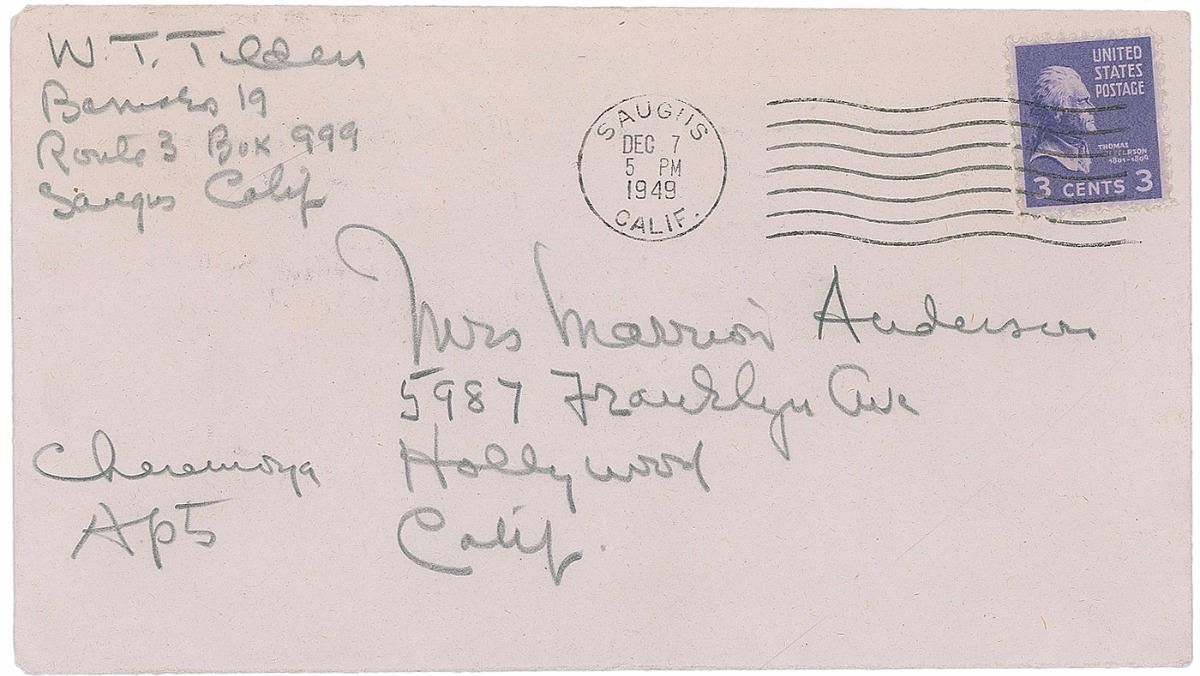 W T. Tilden
Barracks 19
Route 3 Box 999
Saugus Calif
SAUGUS
DEC 7
5 PM
1949
CALIF.
UNITED
STATES
POSTAGE
THOMAS
JEFFERSON
1801-1809
3 CENTS 3
Mrs Marrion Anderson
5987 Franklyn Ave
Hollywood
Calif.
Cheremoya
Apts